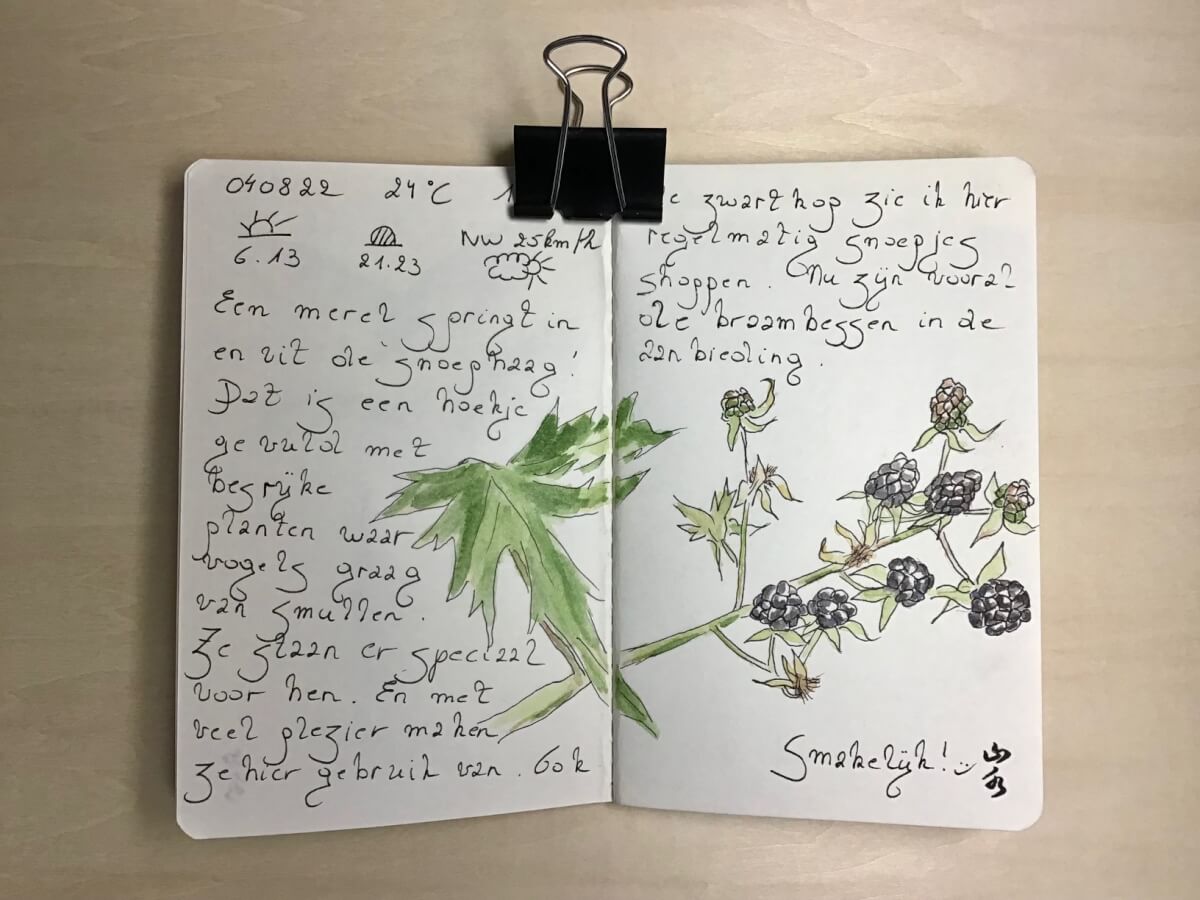 040822 24°C
6.13 21.23 NW 25km/h
Een merel springt in
en uit de snoephaag!
Dat is een hoekje
gevuld met
besrijke
planten waar
vogels graag
van smullen.
Ze staan er speciaal
voor hen. En met
veel plezier maken
ze hier gebruik van. Ook
zwartkop zie ik hier
regelmatig snoepjes
shoppen. Nu zijn vooral
de braambessen in de
aanbieding.
Smakelijk!
山水